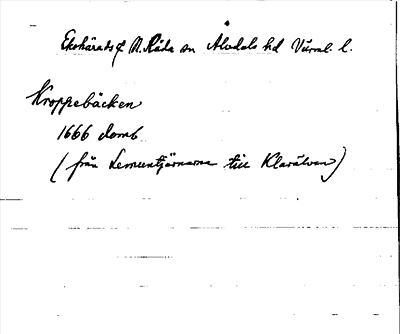 Ekshärads f N. Råda sn Älvdals hd Värml. l.
Kroppebäcken
1666 domb
(från Lemuntjärnarna till Klarälven)